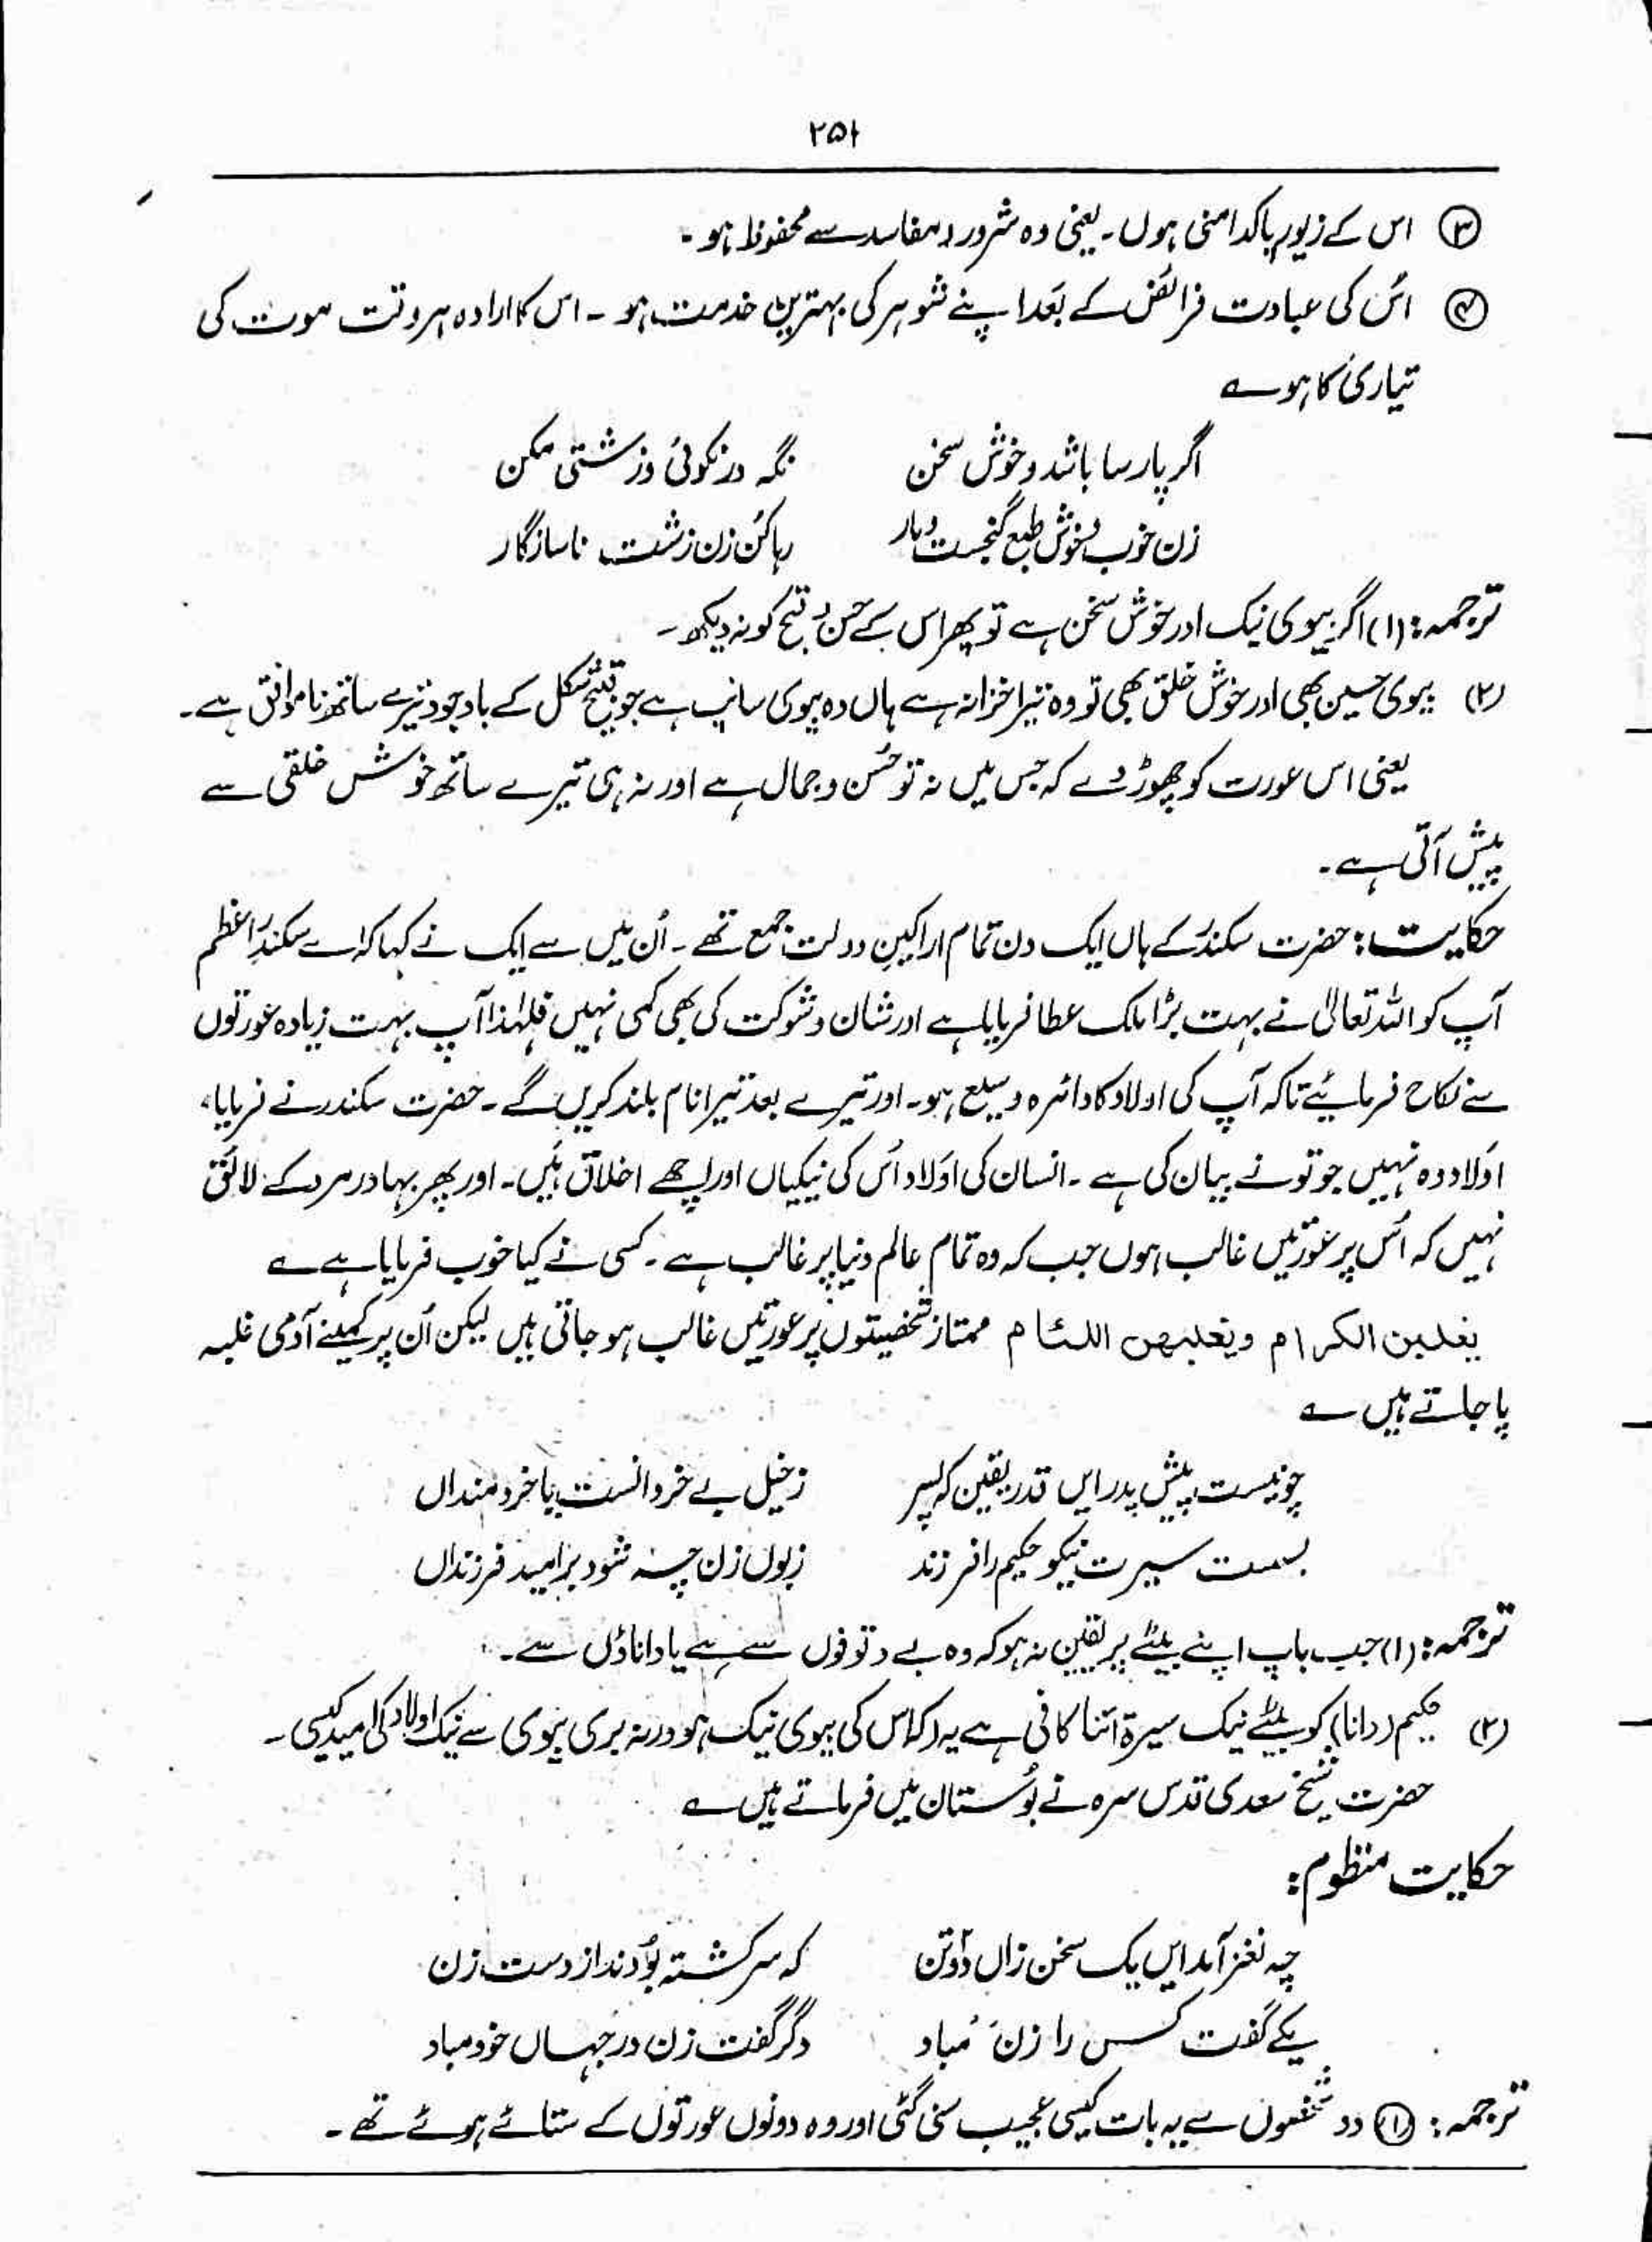 ۲۵۱
③ اس کے زیور پاکدامنی ہوں ۔ یعنی وہ شرور و مفاسد سے محفوظ ہو ۔
④ اُس کی عبادت فرائض کے بعد اپنے شوہر کی بہترین خدمت ہو ۔ اس کا ارادہ ہر وقت موت کی
تیاری کا ہو ؎
اگر پارسا باشد و خوش سخن نگہ در نکوئی و زشتی مکن
زن خوب و خوش طبع گنجست و مار رہا کن زن زشت ناسازگار
ترجمہ : (۱) اگر بیوی نیک اور خوش سخن ہے تو پھر اس کے حسن و قبح کو نہ دیکھ ۔
(۲) بیوی حسین بھی اور خوش خلق بھی تو وہ تیرا خزانہ ہے ہاں وہ بیوی سانپ ہے جو قبیح شکل کے باوجود تیرے ساتھ ناموافق ہے ۔
یعنی اس عورت کو چھوڑ دے کہ جس میں نہ تو حُسن و جمال ہے اور نہ ہی تیرے ساتھ خوش خلقی سے
پیش آتی ہے ۔
حکایت : حضرت سکندر کے ہاں ایک دن تمام اراکینِ دولت جمع تھے ۔ اُن میں سے ایک نے کہا کہ اے سکندرِ اعظم
آپ کو اللہ تعالیٰ نے بہت بڑا ملک عطا فرمایا ہے اور شان و شوکت کی بھی کمی نہیں فلہٰذا آپ بہت زیادہ عورتوں
سے نکاح فرمائیے تاکہ آپ کی اولاد کا دائرہ وسیع ہو ۔ اور تیرے بعد تیرا نام بلند کریں گے ۔ حضرت سکندر نے فرمایا ،
اولاد وہ نہیں جو تو نے بیان کی ہے ۔ انسان کی اولاد اُس کی نیکیاں اور اچھے اخلاق ہیں ۔ اور پھر بہادر مرد کے لائق
نہیں کہ اُس پر عورتیں غالب ہوں جب کہ وہ تمام عالم دنیا پر غالب ہے ۔ کسی نے کیا خوب فرمایا ہے ؎
یغلبن الکرام ویغلبھن اللئام ممتاز شخصیتوں پر عورتیں غالب ہو جاتی ہیں لیکن اُن پر کمینے آدمی غلبہ
پا جاتے ہیں ؎
چو نیست پیش پدر ایں قدر یقین کہ پسر ز خیل بے خردانست یا خردمنداں
بسست سیرت نیکو حکیم را فرزند زبوں زن چہ شود بر امید فرزنداں
ترجمہ : (۱) جب باپ اپنے بیٹے پر یقین نہ ہو کہ وہ بے وقوفوں سے ہے یا داناؤں سے ۔
(۲) حکیم (دانا) کو بیٹے نیک سیرۃ اتنا کافی ہے یہ کہ اس کی بیوی نیک ہو ورنہ بری بیوی سے نیک اولاد کی امید کیسی ۔
حضرت شیخ سعدی قدس سرہ نے بُوستان میں فرماتے ہیں ؎
حکایت منظوم :
چہ نغز آمد ایں یک سخن زاں دو تن کہ سرگشتہ بُودند از دست زن
یکے گفت کس را زن بد مباد دگر گفت زن در جہاں خود مباد
ترجمہ : ① دو شخصوں سے یہ بات کیسی عجیب سنی گئی اور وہ دونوں عورتوں کے ستائے ہوئے تھے ۔